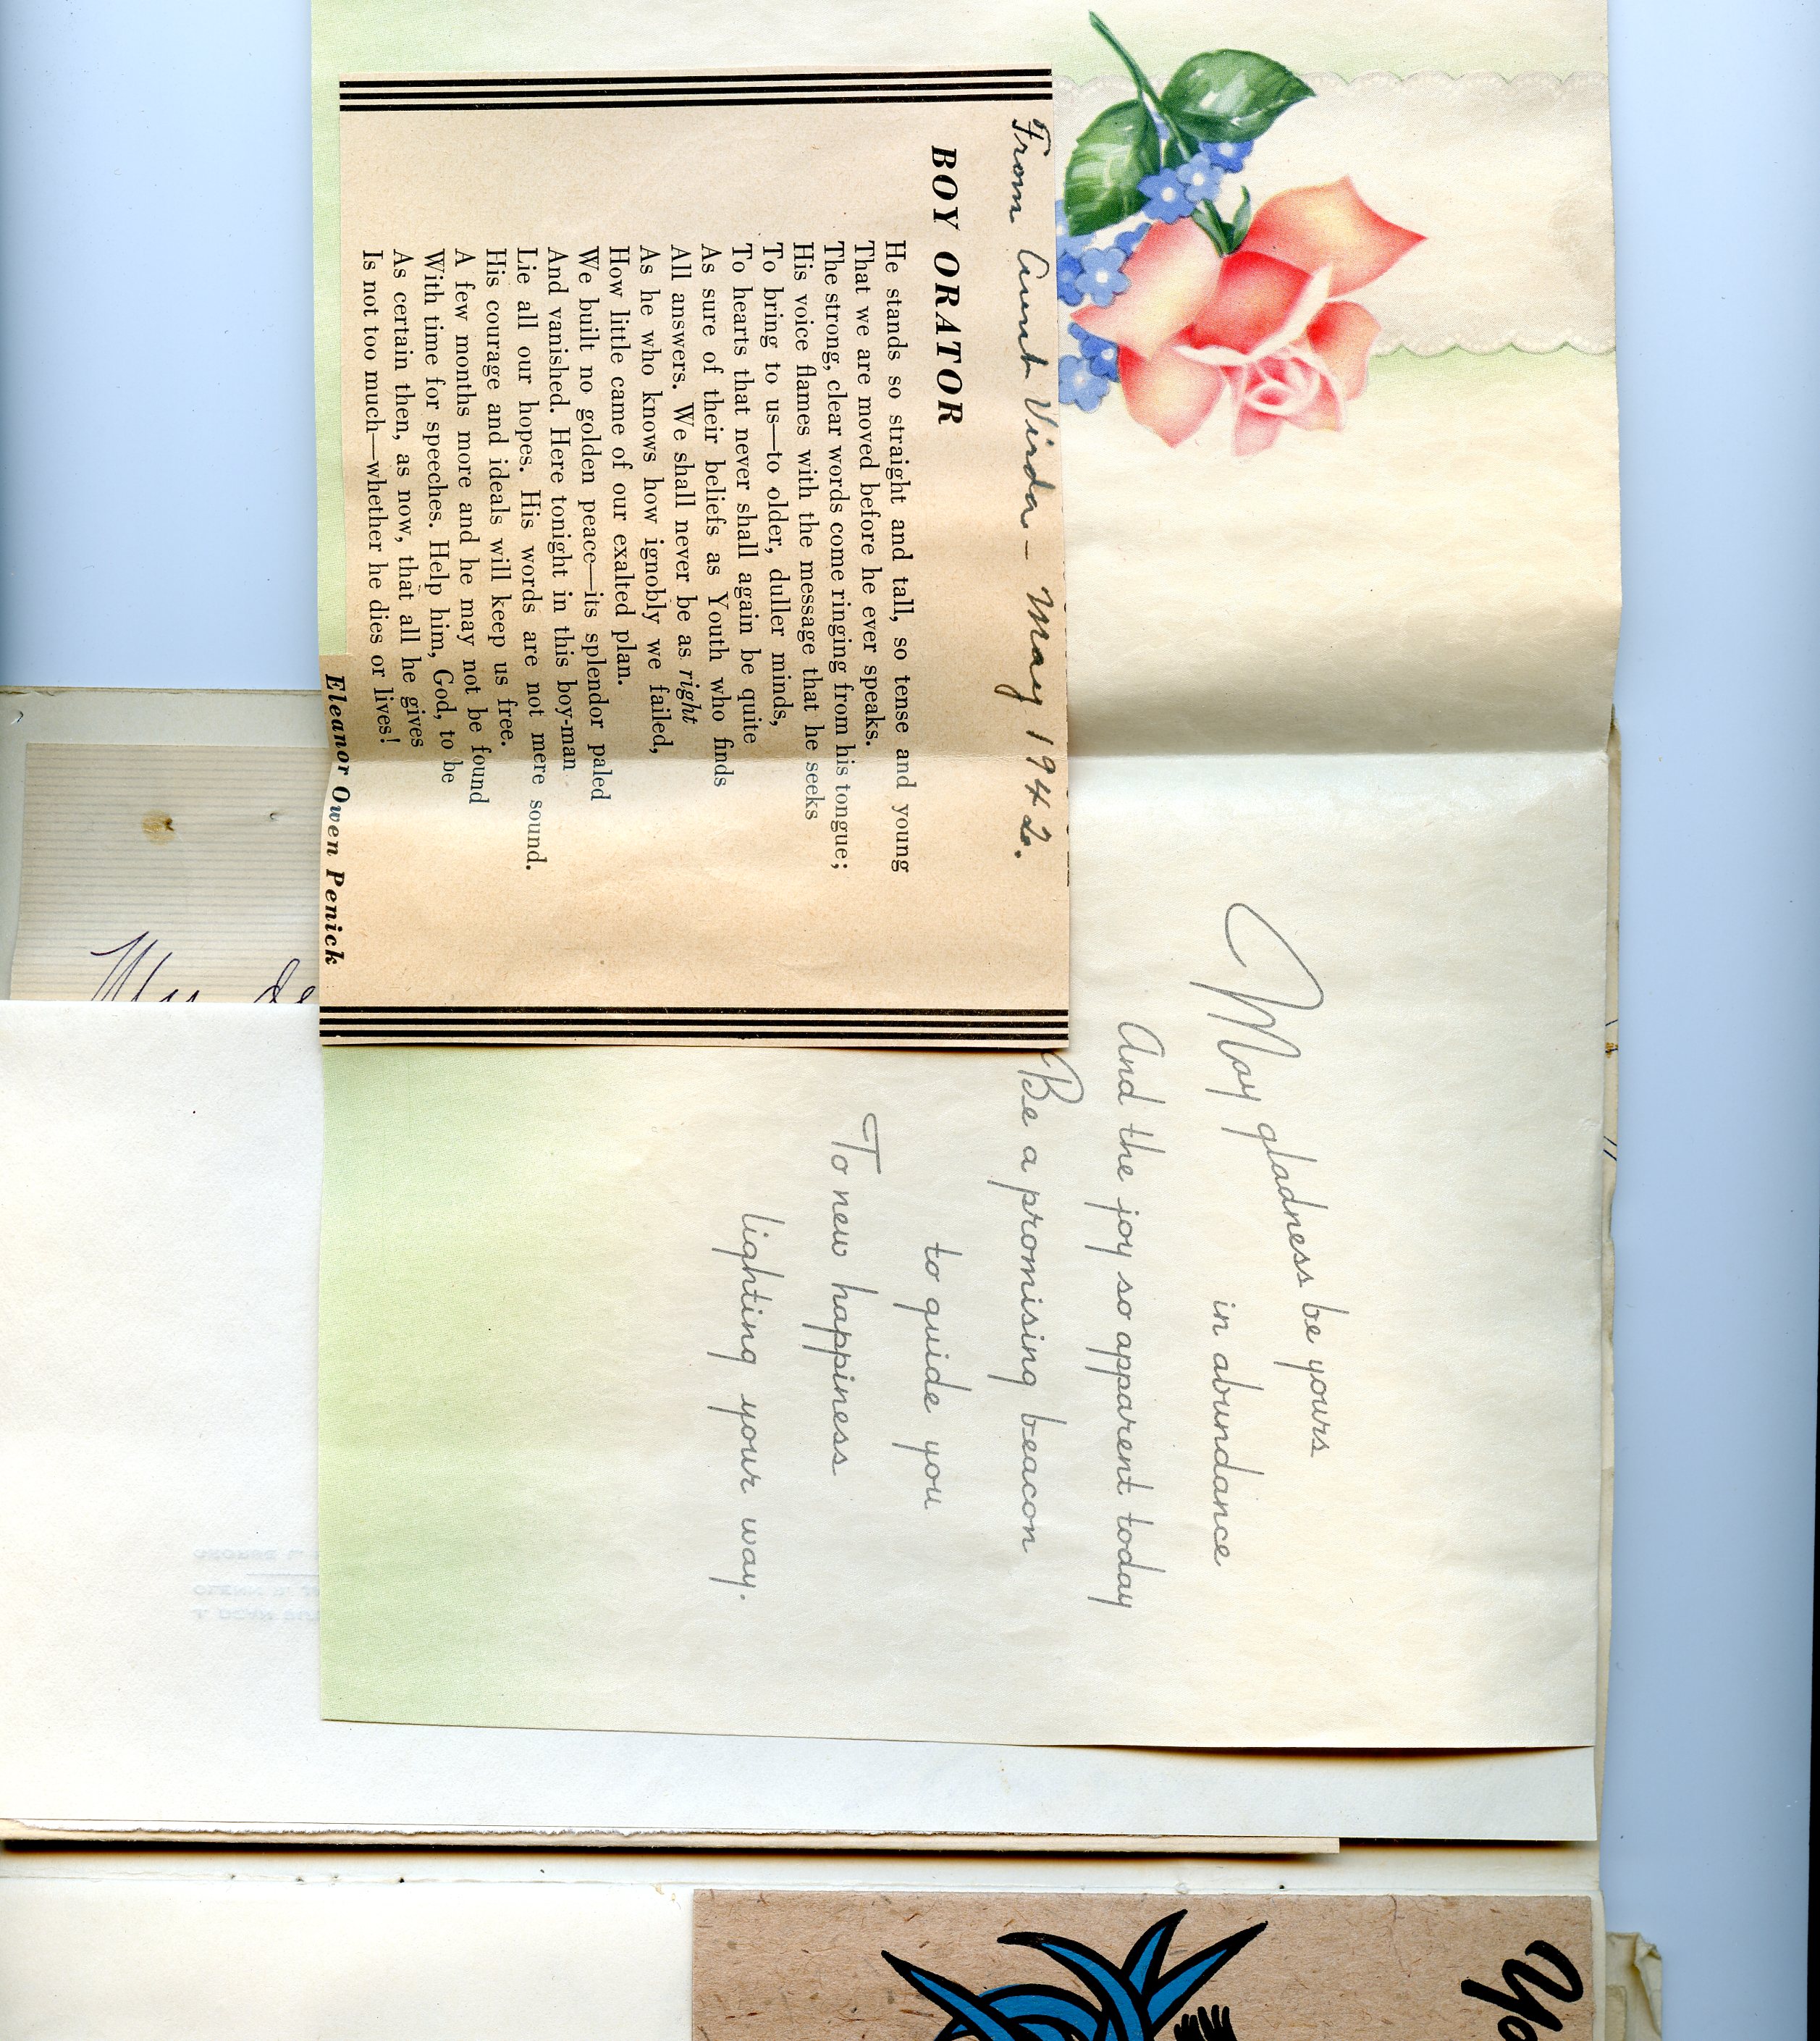 From Aunt Virda – May 1942.
BOY ORATOR
He stands so straight and tall, so tense and young
That we are moved before he ever speaks.
The strong, clear words come ringing from his tongue;
His voice flames with the message that he seeks
To bring to us—to older, duller minds,
To hearts that never shall again be quite
As sure of their beliefs as Youth who finds
All answers. We shall never be as right
As he who knows how ignobly we failed,
How little came of our exalted plan.
We built no golden peace—its splendor paled
And vanished. Here tonight in this boy-man
Lie all our hopes. His words are not mere sound.
His courage and ideals will keep us free.
A few months more and he may not be found
With time for speeches. Help him, God, to be
As certain then, as now, that all he gives
Is not too much—whether he dies or lives!
Eleanor Owen Penick
May gladness be yours
in abundance
And the joy so apparent today
Be a promising beacon
to guide you
To new happiness
lighting your way.
My de
Yo